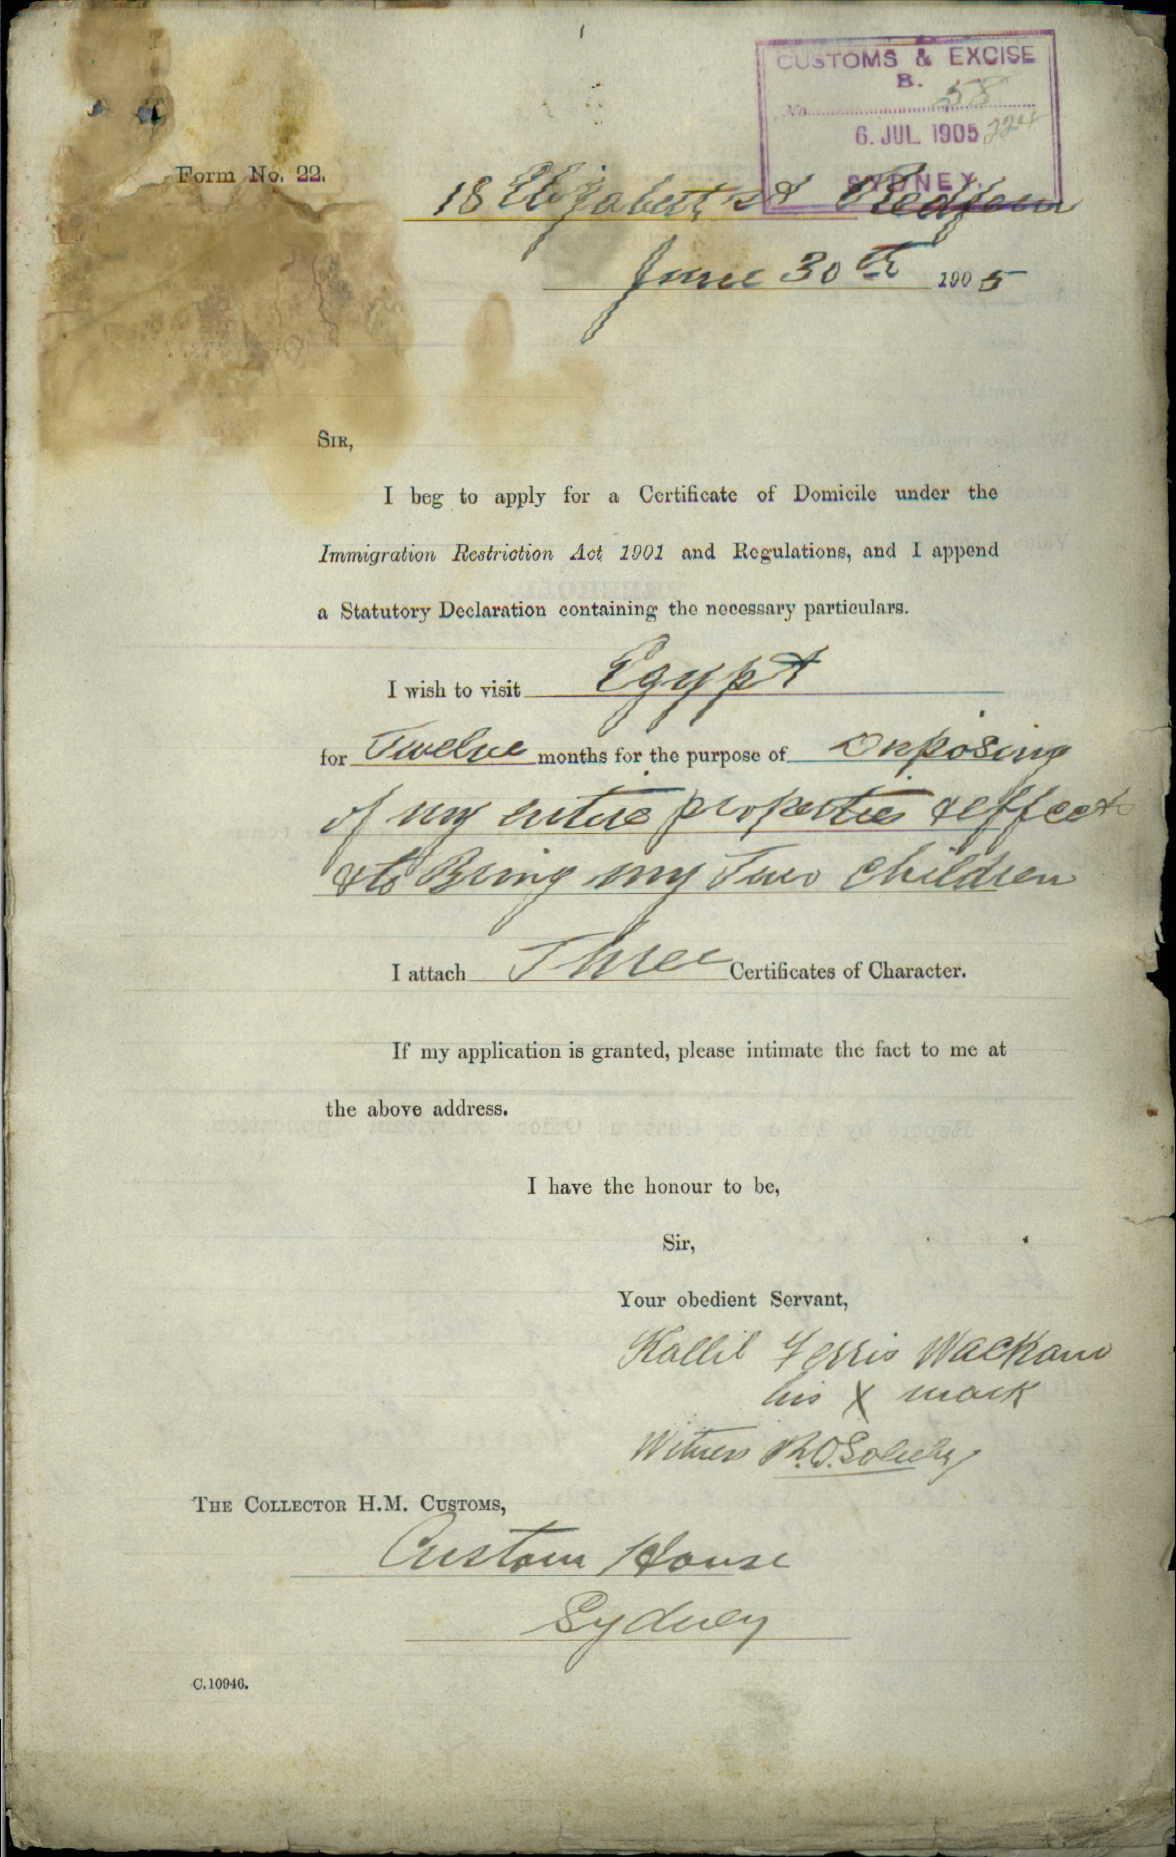 CUSTOMS & EXCISE
B.
No. 58
6. JUL 1905
SYDNEY.
Form No. 22.
18 Elizabeth St Redfern
June 30th 1905
SIR,
I beg to apply for a Certificate of Domicile under the
Immigration Restriction Act 1901 and Regulations, and I append
a Statutory Declaration containing the necessary particulars.
I wish to visit Egypt
for Twelve months for the purpose of
of my entire properties & effects
& to Bring my Two Children
I attach Three Certificates of Character.
If my application is granted, please intimate the fact to me at
the above address.
I have the honour to be,
Sir,
Your obedient Servant,
Kallil Ferris Wackano
his X mark
Witness
THE COLLECTOR H.M. CUSTOMS,
Custom House
Sydney
C.10946.